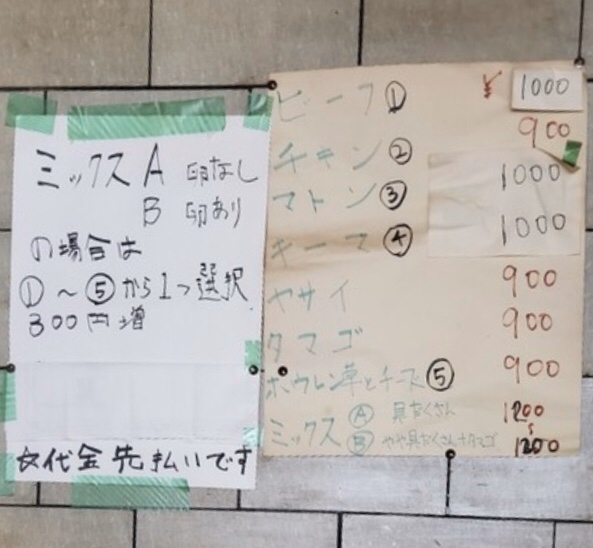 ミックス A 卵なし
B 卵あり
の場合は
① 〜 ⑤ から1つ選択
300円増
代金先払いです
ビーフ ① ¥ 1000
チキン ② 900
マトン ③ 1000
キーマ ④ 1000
ヤサイ 900
タマゴ 900
ホウレン草とチーズ ⑤ 900
ミックス Ⓐ 具だくさん 1200
Ⓑ やや具だくさん+タマゴ 1200